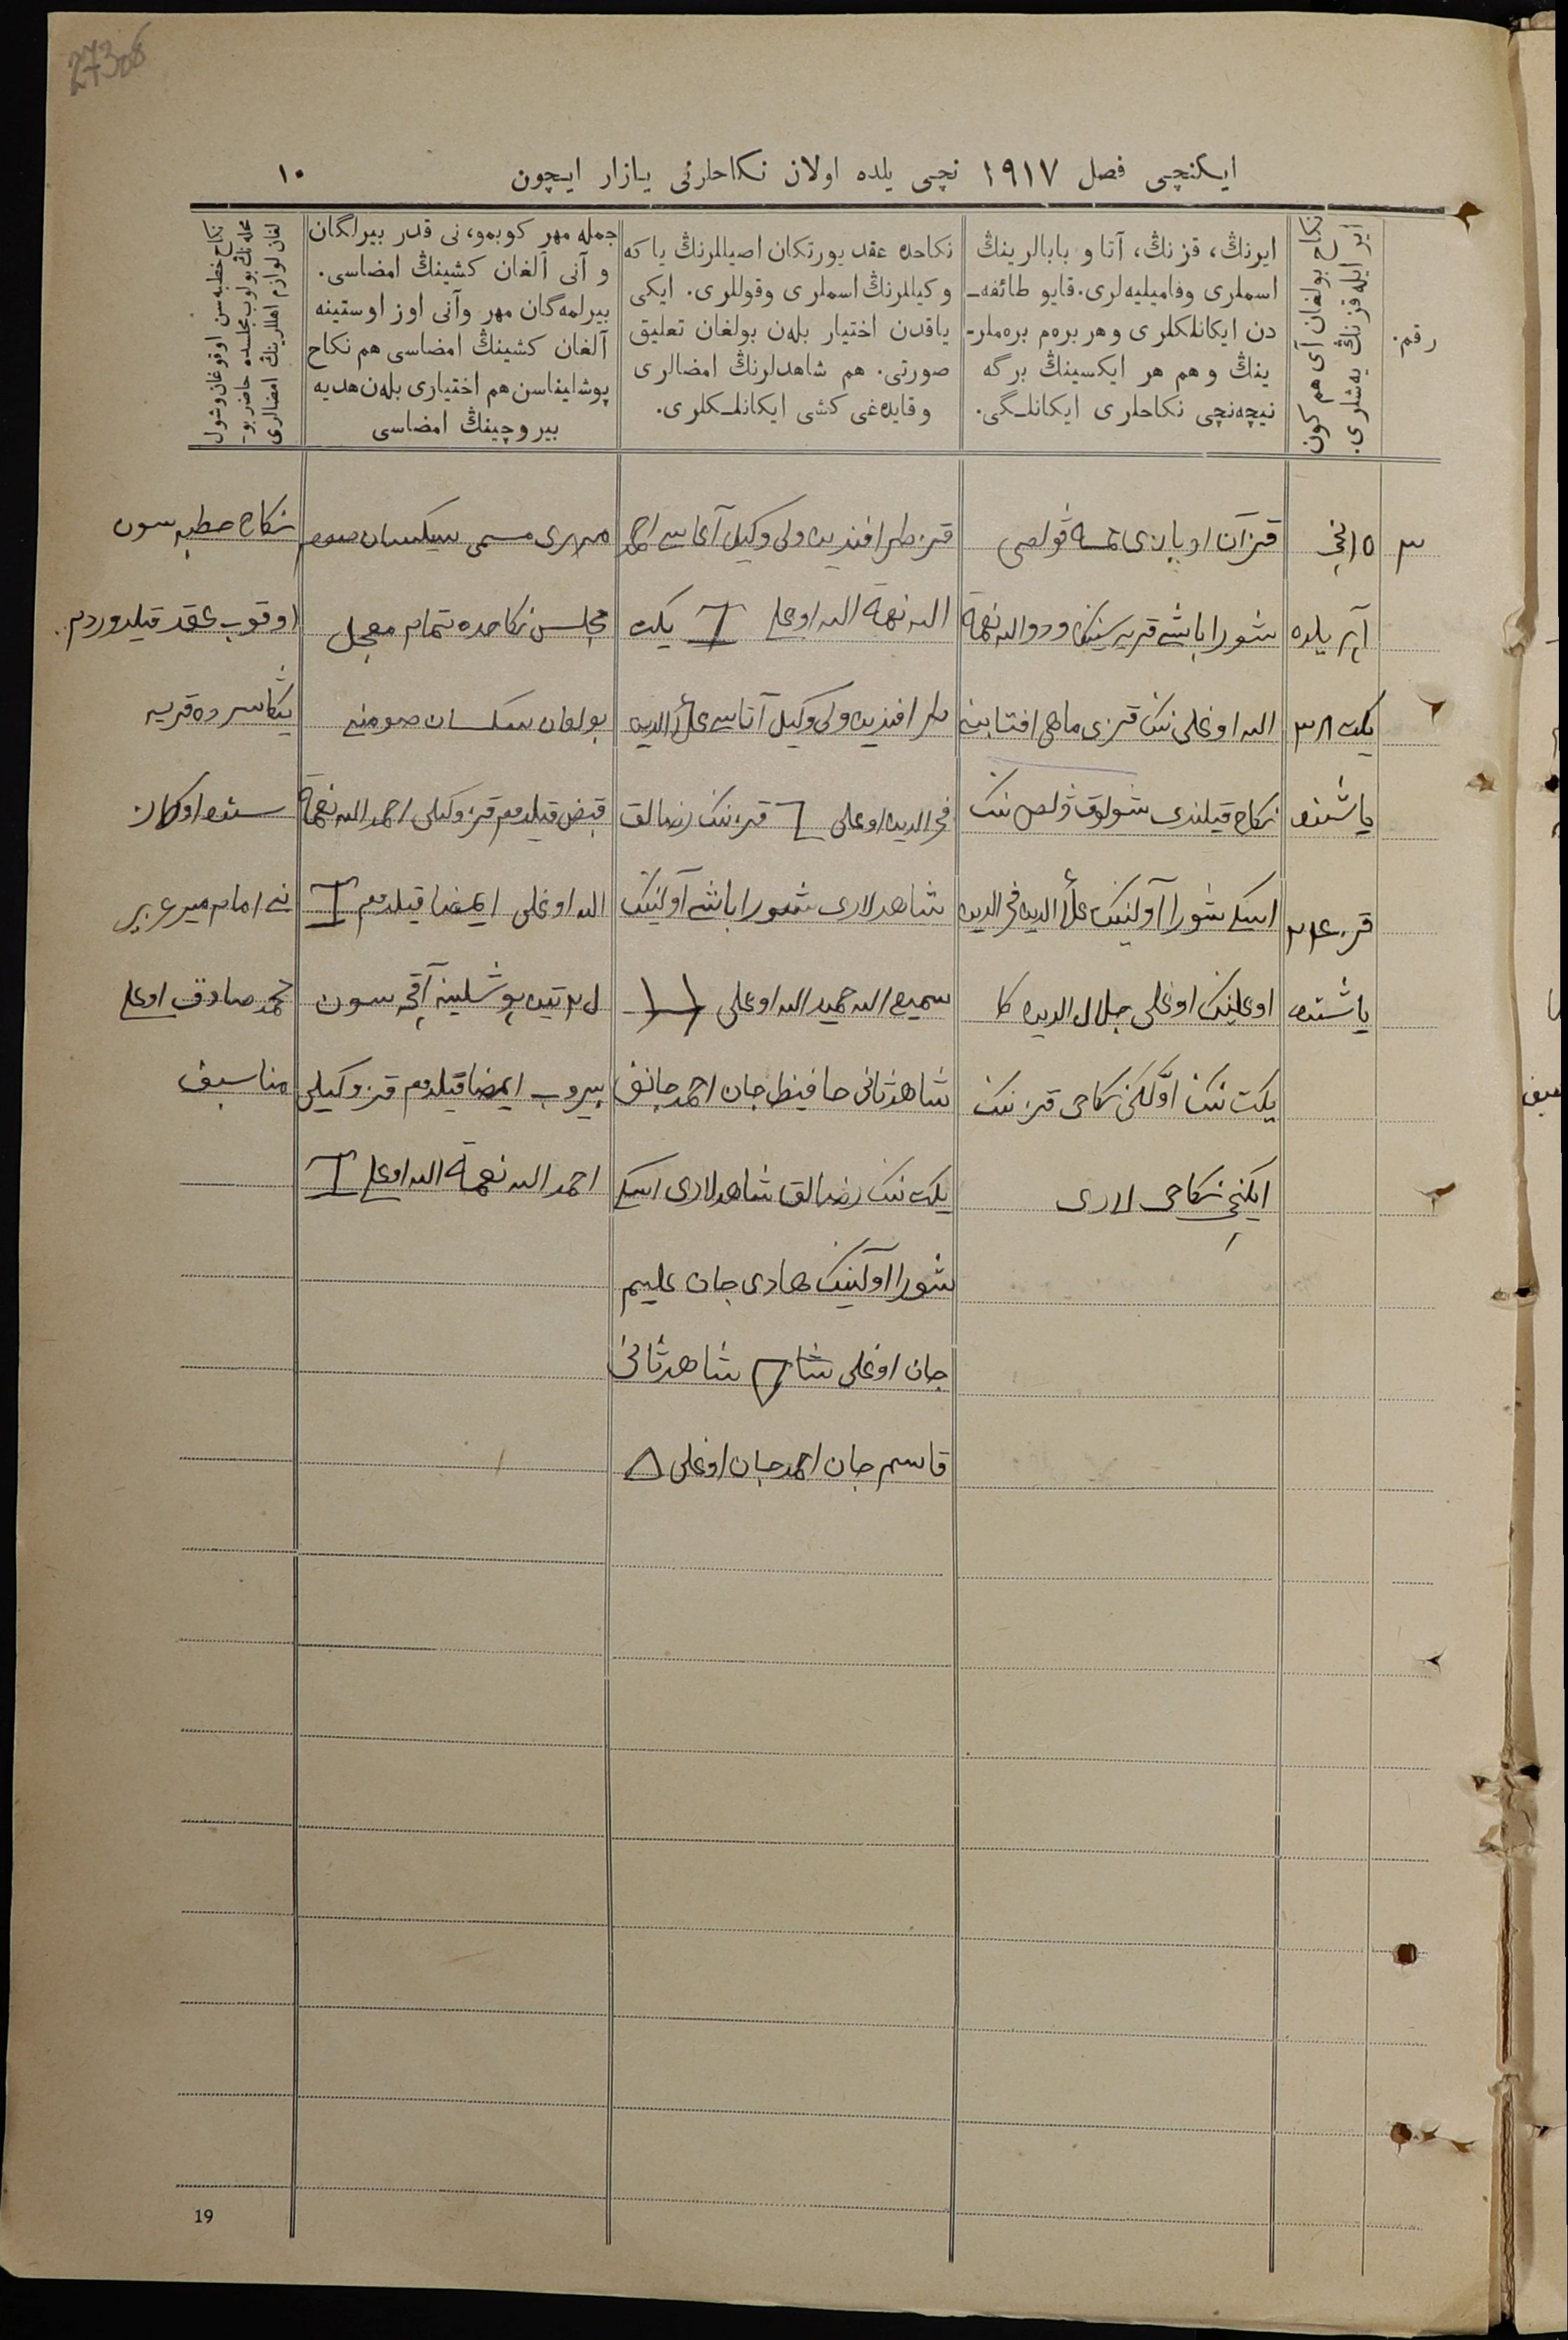 27308
ایکنچی فصل ۱۹۱۷ نچی یلده اولان نکاحلرنی یازار ایچون
۱۰
رقم.
نکاح بولغان آی هم کون
ایر ایله قزنڭ یه‌شلری.
ایرنڭ، قزنڭ، آتا و بابالرینڭ
اسملری وفامیلیه‌لری. قایو طائفه‌ـ
دن ایکانلکلری و هر بره‌م بره‌ملر-
ینڭ و هم هر ایکسینڭ برگه
نیچه‌نچی نکاحلری ایکانلـگی.
نکاحده عقد یورتکان اصیللرنڭ یا که
وکیللرنڭ اسملری وقوللری. ایکی
یاقدن اختیار بله‌ن بولغان تعلیق
صورتی. هم شاهدلرنڭ امضالری
وقایده‌غی کشی ایکانلـکلری.
جمله مهر کوبمو، نی قدر بیرلگان
و آنی آلغان کشینڭ امضاسی.
بیرلمه‌گان مهر وآنی اوز اوستینه
آلغان کشینڭ امضاسی هم نکاح
پوشلیناسن هم اختیاری بله‌ن هدیه
بیروچینڭ امضاسی
نکاح خطبه‌سن اوقوغان وشول
محله‌نڭ بولوب مجلسده حاضر بو-
لغان لوازم اهللرینڭ امضالری
۳
۱۵ نچی
آپریلده
یکت ۳۸
یاشنده
قز ۲۴
یاشنده
شورا باشی قریه‌سینڭ ودوالله نعمة
الله اوغلی ننک قزی ماهی افتابنه
نکاح قیلندی شولوق ولص ننک
اسکی شورا آولنیک علأ الدین فخر الدین
اوغلینک اوغلی جلال الدین کا
یکت ننک اوّلکی نکاحی قز ننک
ایکنچی نکاحی لاری
الله نعمة الله اوغلی یکت
فخر الدین اوغلی قز ننک رضالق
شاهدلاری شورا باشی آولنیک
سمیع الله حمید الله اوغلی
شاهد ثانی حافیظ جان احمد جانف
یکت ننک رضالق شاهدلاری اسکی
شورا اولنیک هادی جان علیم
جان اوغلی شاهد ثانی
قاسم جان احمد جان اوغلی
مهری مسمی سیکسان صوم
مجلس نکاحده تمام معجل
بولغان سکسان صومنی
قبض قیلدم قز وکیلی احمد الله نعمة
الله اوغلی ایمضا قیلدم
تین پوشلینه آقچه سون
بیروب ایمضا قیلدم قز وکیلی
احمد الله نعمة الله اوغلی
نکاح خطبه سون
اوقوب عقد قیلدوردم.
نی امام میر عرب
محمد صادق اوغلی
مناسیف
19